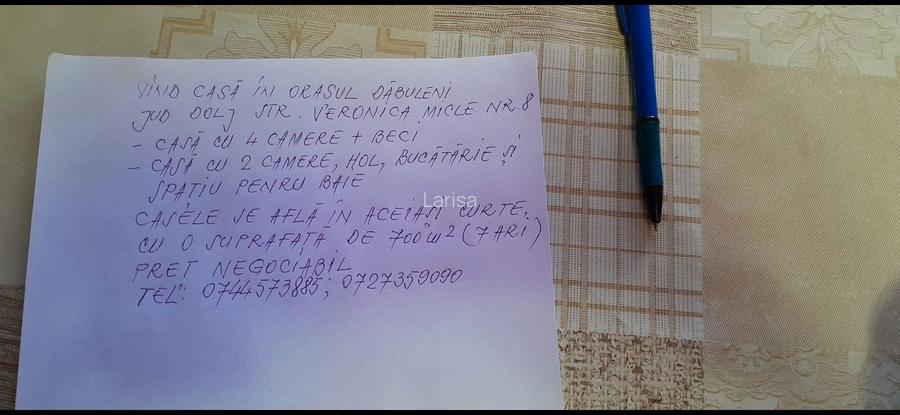 VÎND CASĂ ÎN ORASUL DĂBULENI
JUD DOLJ STR. VERONICA MICLE NR.8
- CASĂ CU 4 CAMERE + BECI
- CASĂ CU 2 CAMERE, HOL, BUCĂTĂRIE ȘI
SPAȚIU PENRU BAIE
Larisa
CASELE SE AFLĂ ÎN ACEIAȘI CURTE,
CU O SUPRAFAȚĂ DE 700 m² (7 ARI)
PRET NEGOCIABIL
TEL: 0744573885; 0727359090